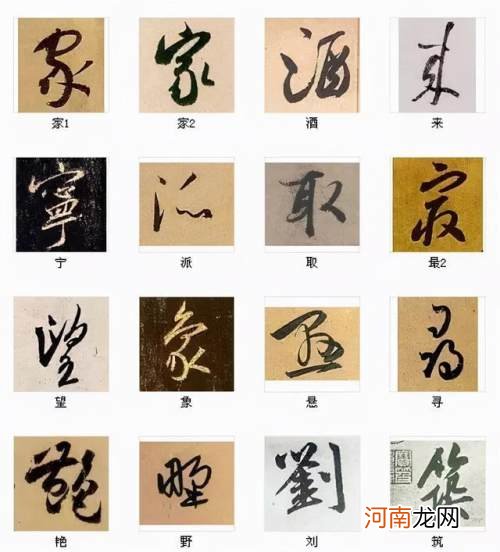 家 家 酒 来
家1 家2 酒 来
寧 派 取 最
宁 派 取 最2
望 象 悬 寻
望 象 悬 寻
艳 野 劉 築
艳 野 刘 筑
河南龙网